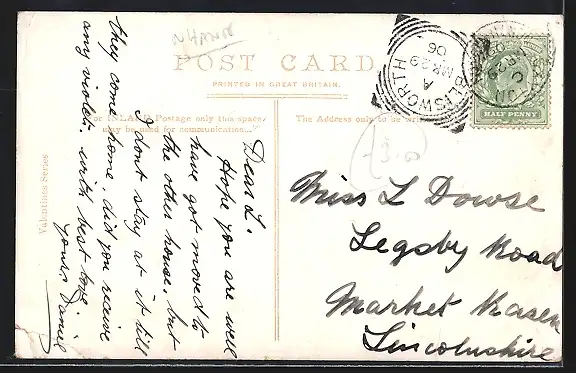 N HANTS
POST CARD.
PRINTED IN GREAT BRITAIN.
For INLAND Postage only this space
may be used for communication.
The Address only to be written
Valentines Series
WORTH
A
MR 29
06
HALF PENNY
Dear L.
Hope you are well
have got moved to
the other house, but
I dont stay at it till
they come home. did you receive
any violets. with best love
yours Daniel
Miss L Dowse
Legsby Road
Market Rasen
Lincolnshire